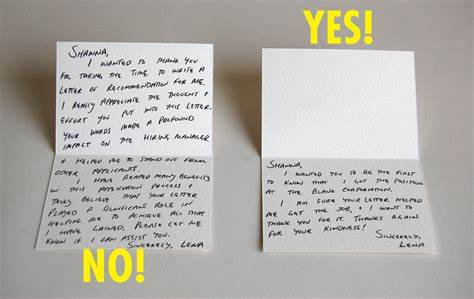 YES!
SHANNA,
I WANTED TO THANK YOU
FOR TAKING THE TIME TO WRITE A
LETTER OF RECOMMENDATION FOR ME.
I REALLY APPRECIATE THE THOUGHT +
EFFORT YOU PUT INTO THIS LETTER.
YOUR WORDS MADE A PROFOUND
IMPACT ON THE HIRING MANAGER
+ HELPED ME TO STAND OUT FROM
OTHER APPLICANTS.
I HAVE REAPED MANY BENEFITS
IN THIS APPLICATION PROCESS +
TRULY BELIEVE THAT YOUR LETTER
PLAYED A SIGNIFICANT ROLE IN
HELPING ME TO ACHIEVE ALL THAT
I HAVE GAINED. PLEASE LET ME
KNOW IF I CAN ASSIST YOU.
SINCERELY, LENA
NO!
SHANNA,
I WANTED YOU TO BE THE FIRST
TO KNOW THAT I GOT THE POSITION
AT THE BLANK CORPORATION.
I AM SURE YOUR LETTER HELPED
ME GET THE JOB, + I WANT TO
THANK YOU FOR IT. THANKS AGAIN
FOR YOUR KINDNESS!
SINCERELY,
LENA